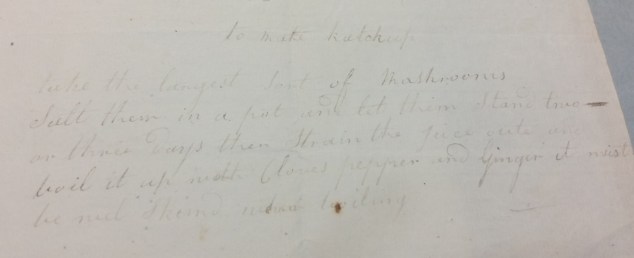 to make ketchup
take the largest sort of Mashrooms
Salt them in a pot and let them stand two
or three days then Strain the juce oute and
boil it up with Cloves pepper and Ginger it must
be well skimd when boiling